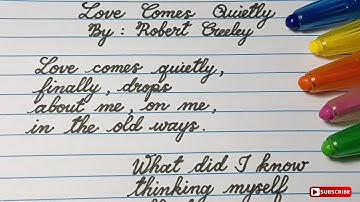 Love Comes Quietly
By : Robert Creeley
Love comes quietly,
finally, drops
about me, on me,
in the old ways.
What did I know
thinking myself
SUBSCRIBE